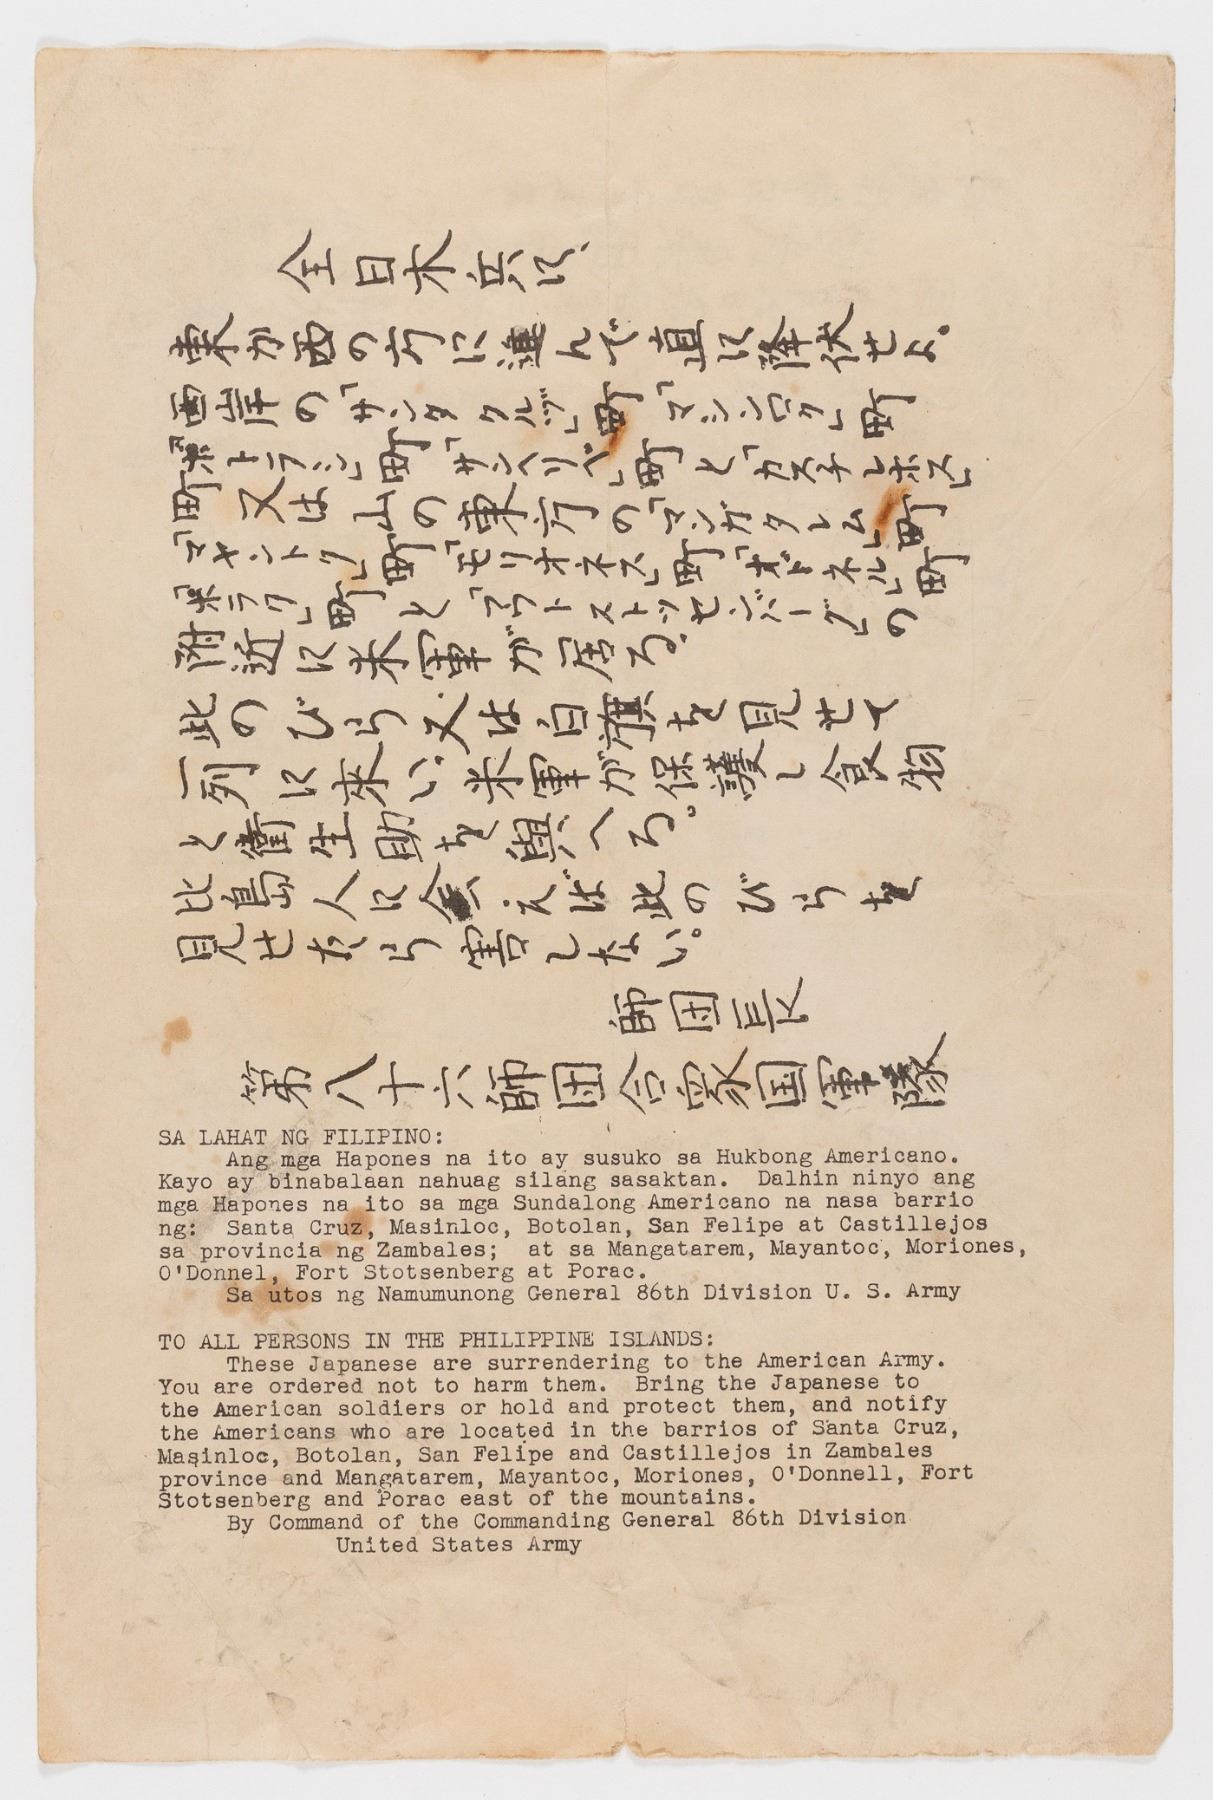 全日本兵に、
東か西の方に進んで直に降伏せよ。
西岸の「サンタクルヅ」町「マシンロク」町
「ボトラン」町「サンヘリペ」町と「カスチレホス」
町又は山の東方の「マンガタレム」町
「マヤントク」町「モリオネス」町「オドネル」町
「ポラク」町と「フワトストッセンバーグ」の
附近に米軍が居る。
此のびら又は白旗を見せて
一列に来い。米軍が保護し食物
と衛生助を與へる。
比島人に会えば此のびらを
見せたら害しない。
師団長
第八十六師団合衆国軍隊
SA LAHAT NG FILIPINO:
Ang mga Hapones na ito ay susuko sa Hukbong Americano.
Kayo ay binabalaan nahuag silang sasaktan. Dalhin ninyo ang
mga Hapones na ito sa mga Sundalong Americano na nasa barrio
ng: Santa Cruz, Masinloc, Botolan, San Felipe at Castillejos
sa provincia ng Zambales; at sa Mangatarem, Mayantoc, Moriones,
O'Donnel, Fort Stotsenberg at Porac.
Sa utos ng Namumunong General 86th Division U. S. Army
TO ALL PERSONS IN THE PHILIPPINE ISLANDS:
These Japanese are surrendering to the American Army.
You are ordered not to harm them. Bring the Japanese to
the American soldiers or hold and protect them, and notify
the Americans who are located in the barrios of Santa Cruz,
Masinloc, Botolan, San Felipe and Castillejos in Zambales
province and Mangatarem, Mayantoc, Moriones, O'Donnell, Fort
Stotsenberg and Porac east of the mountains.
By Command of the Commanding General 86th Division
United States Army